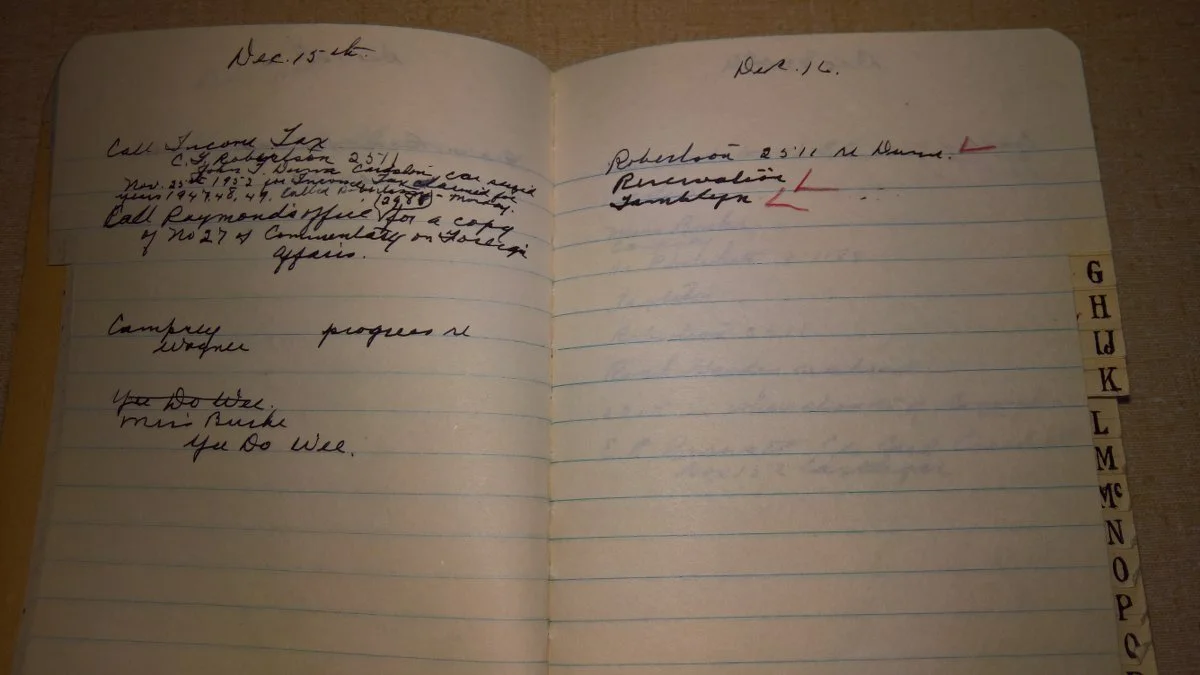 Dec. 15th.
Call Income Tax
C. F. Robertson 2511
John T. Dunn car seized
Nov. 25th 1952 for Income Tax
years 1947, 48, 49. Called (2988) - Monday.
Call Raymond's office for a copy
of No 27 of Commentary on Foreign
Affairs.
progress re
Wagner
Yee Do Wee.
Miss Burke
Yee Do Wee.
Dec. 16.
Robertson 2511 re Dunn.
Reservation
Tamblyn
G
H
IJ
K
L
M
Mc
N
O
P
Q